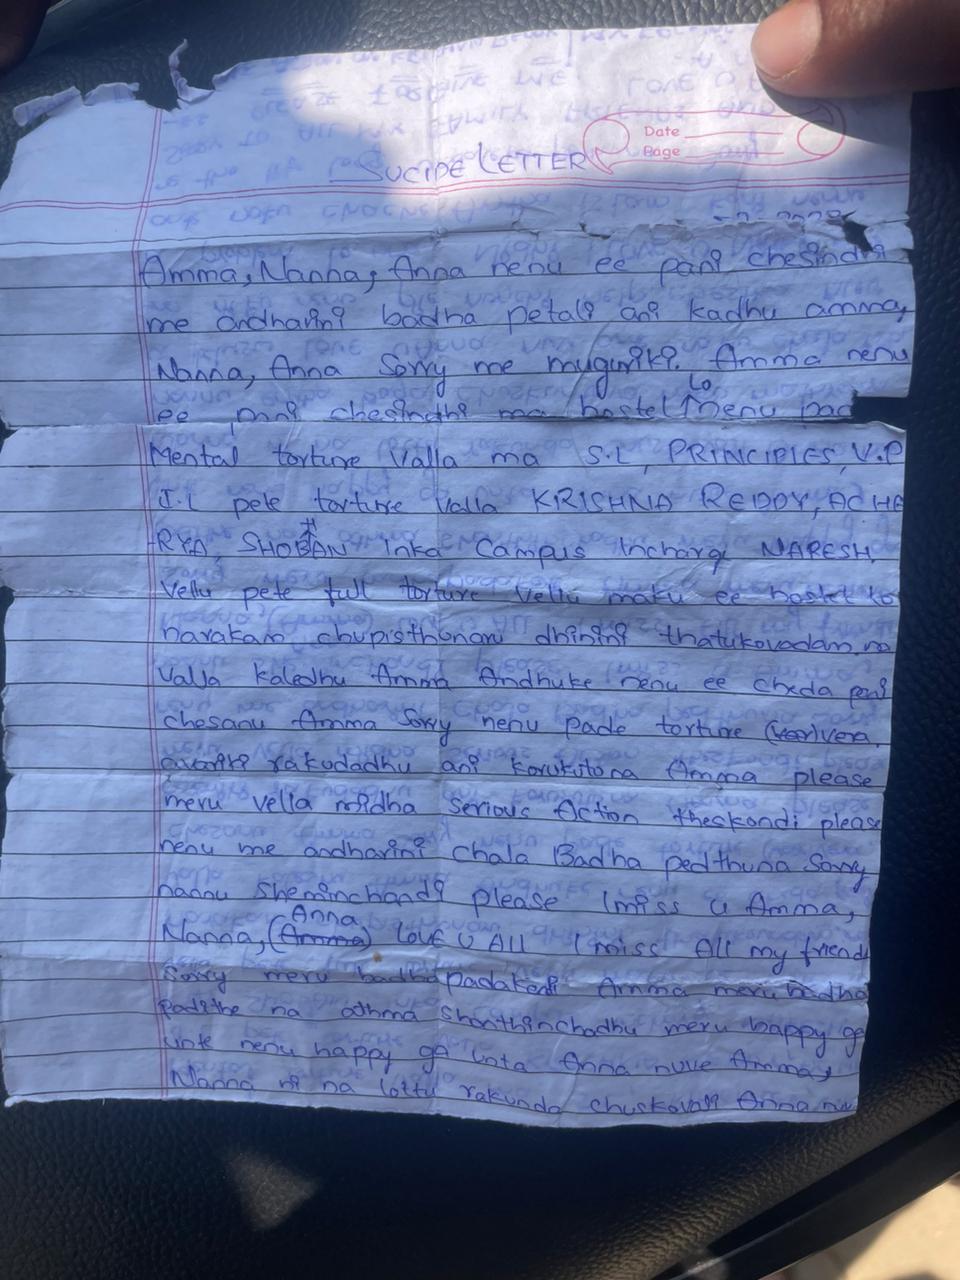 Date
Page
SUCIDE LETTER
Amma, Nanna, Anna nenu ee pani chesindhi
me andharini badha petali ani kadhu amma,
Nanna, Anna Sorry me muguriki. Amma nenu
ee pani chesindhi ma hostel lo nenu pad
Mental torture valla ma S.L, PRINCIPLES, V.P
J.L pete torture valla KRISHNA REDDY, ACHE
RYA, SHOBAN inka Campus Incharg NARESH.
Vellu pete full torture Vellu maku ee hostel lo
narakam chupisthunaru dhinini thatukovadam na
valla kaledhu Amma Andhuke nenu ee cheda pani
chesanu Amma Sorry nenu pade torture vera
rakudadhu ani korukutona Amma please
meru vella midha serious Action theskondi please
nenu me andharini chala Badha pedthuna Sorry
nannu sheminchandi please I miss u Amma,
Nanna, Anna (Amma) love U All I miss All my friend
Sorry meru badhapadakendi Amma meru badha
padithe na athma shanthinchadhu meru happy ga
unte nenu happy ga unta Anna nuve Amma,
Nanna ni na lottu rakunda chuskovali Anna nuv